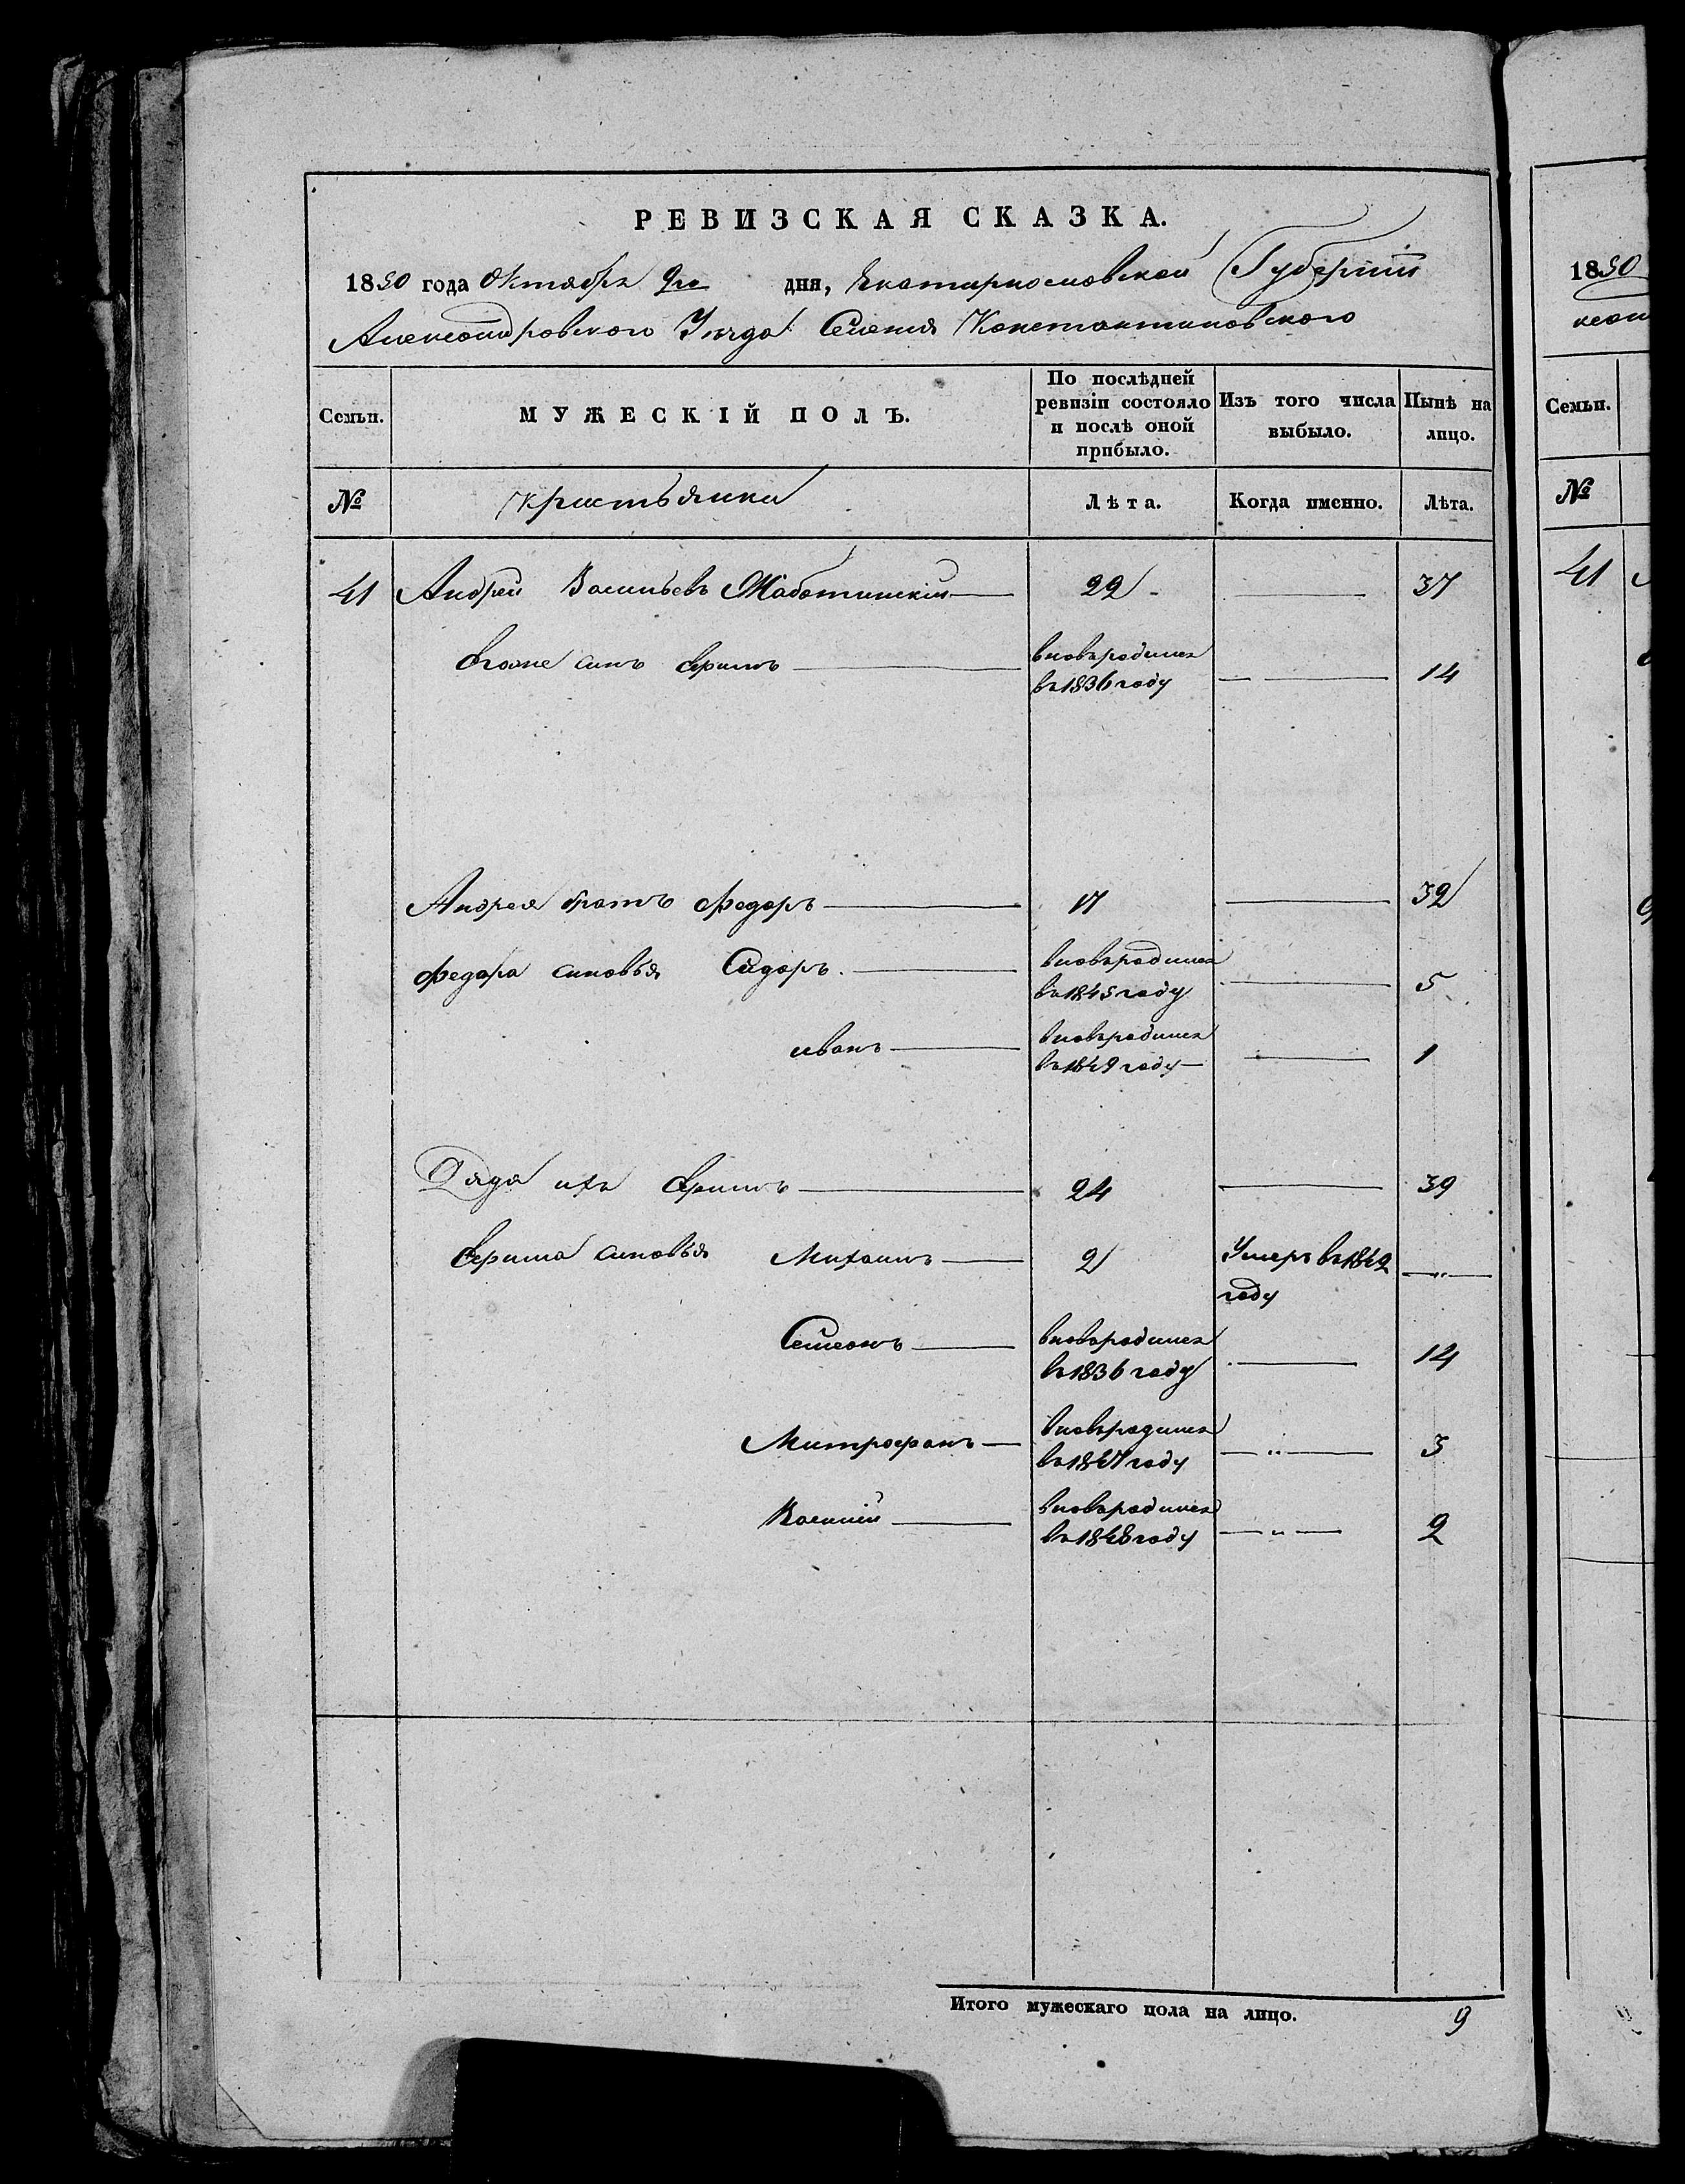 РЕВИЗСКАЯ СКАЗКА.
1850 года Октября 9го дня, Екатеринославской Губернии
Александровского Уезда Селения Константиновского
Семьи.
МУЖЕСКІЙ ПОЛЪ.
По послѣдней ревизіи состояло и послѣ оной прибыло.
Изъ того числа выбыло.
Нынѣ на лицо.
№
Крестьяни
Лѣта.
Когда именно.
Лѣта.
41 Андрей Васильевъ Жаботинскій 22 37
Егоже синъ вновьродился въ 1836 году 14
Андрея братъ Федоръ 17 32
Федора синовья Сидоръ. вновьродился въ 1845 году 5
иванъ вновьродился въ 1849 году 1
Дядя ихъ 24 39
синовья Михаилъ 2 Умеръ въ 1842 году
Семенъ вновьродился въ 1836 году 14
Митрофанъ вновьродился въ 1847 году 3
Василій вновьродился въ 1848 году 2
Итого мужескаго пола на лицо. 9
1850
Семьи.
№
41